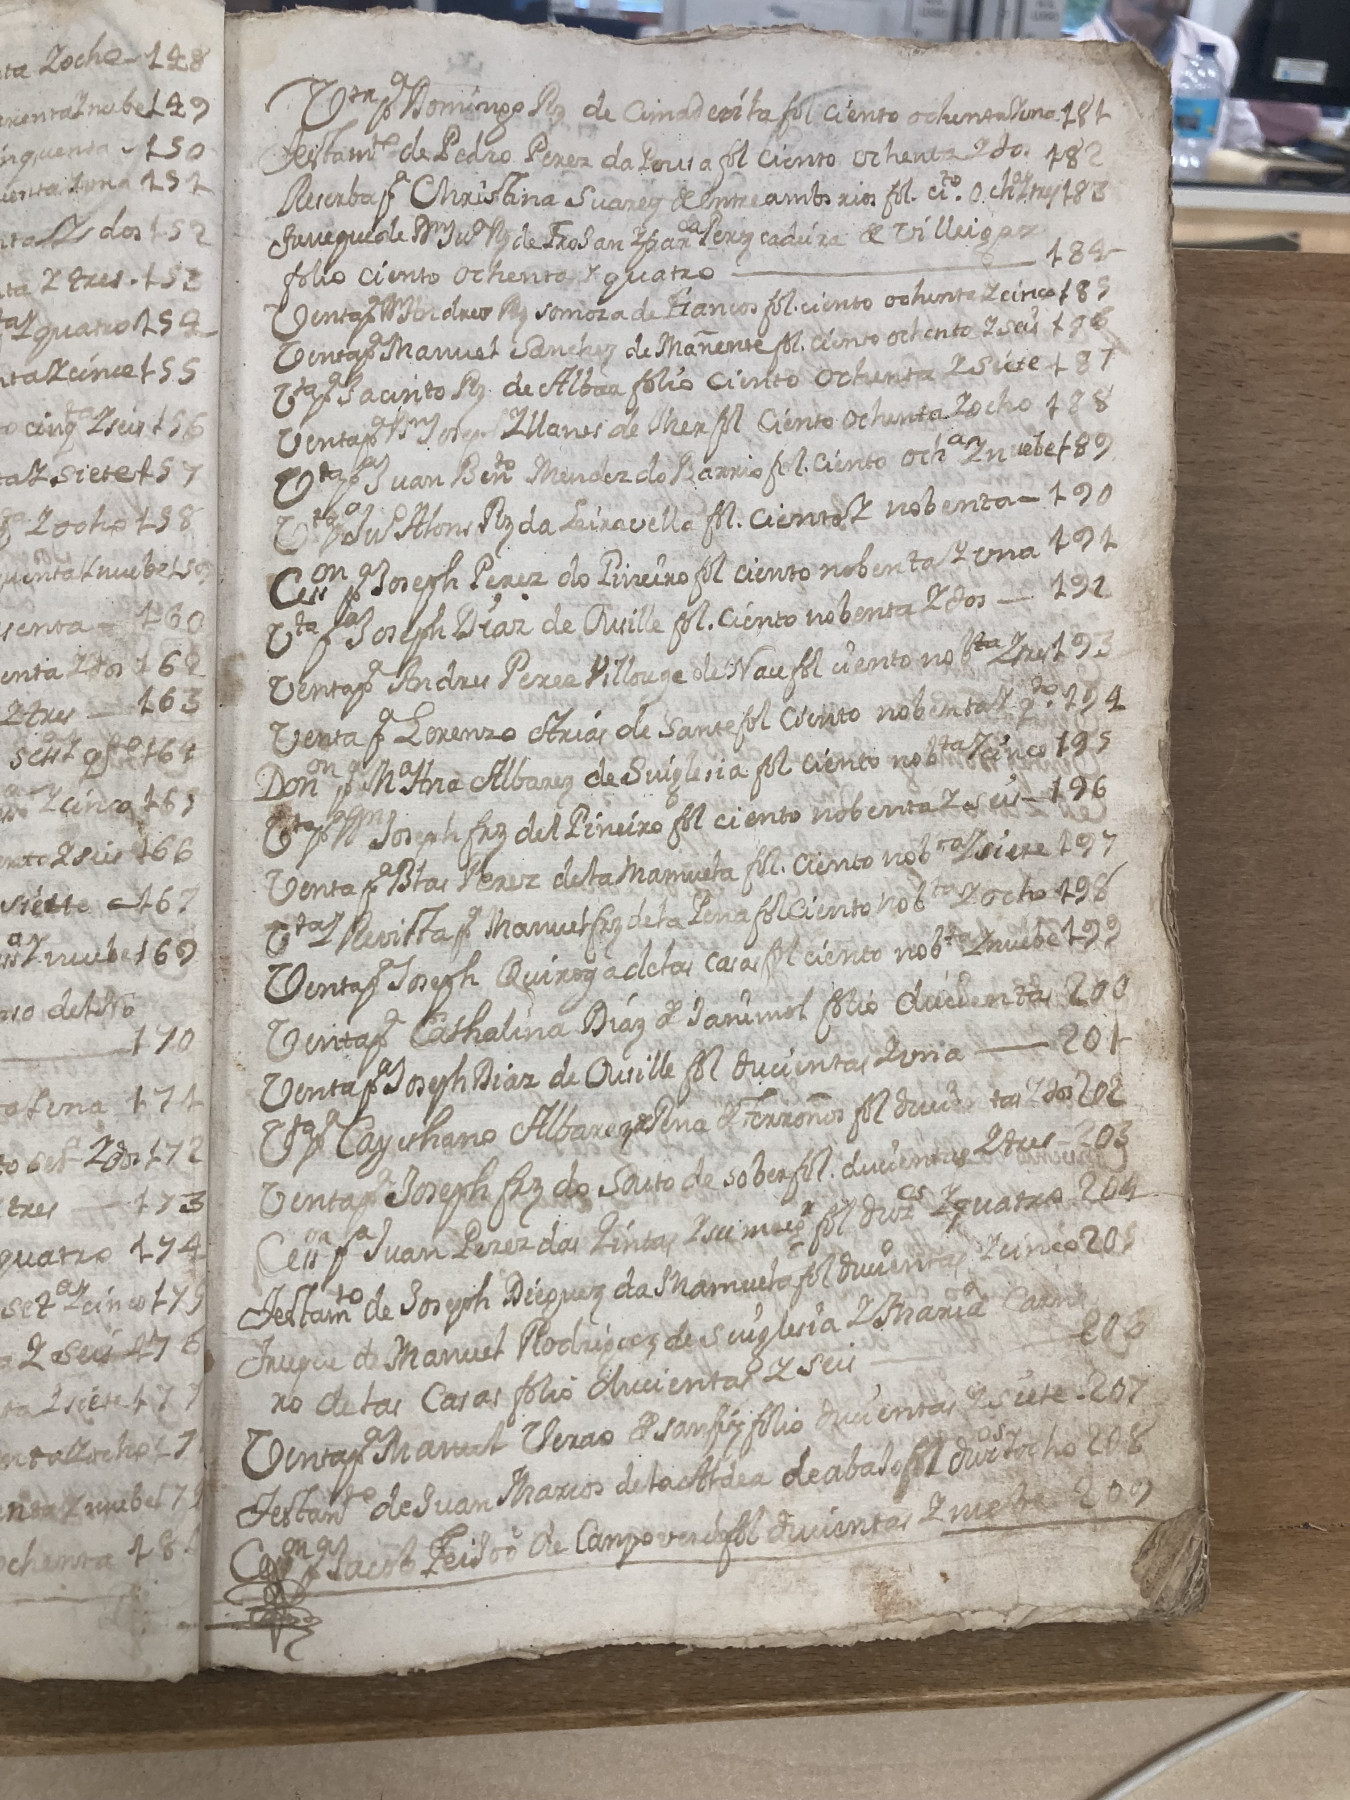 nta Zocho - 148
nuebe 149
inquenta - 150
enta Zuna 151
nta Z dos 152
nta Z tres - 153
Zquatro 154
nta Z cinco 155
cinqta Z seis 156
ta Z siete 157
Z ocho 158
quenta Z nuebe 159
senta - 160
enta Z dos 162
Z tres - 163
164
Z cinco 165
ento Z seis 166
siete - 167
Z nuebe 169
170
Zuna 171
Z dos 172
tres - 173
quatro 174
set.ta Z cinco 175
Z seis 176
ta Z siete 177
enta Z ocho 17
enta Z nuebe 179
ochenta 18
Vtª pª Domingo Rz de Cimadevila fol ciento ochenta Zuna 181
Testamto de Pedro Perez da Lousa fol ciento ochenta Z dos 182
Reserba pª Christina Suarez de Entreambosrios fol. cito. ochta Z trs 183
de Frojan Z para Perez cadeira de Villeigaz
folio ciento ochenta Y quatro 184
Venta pª Dn Andres Rz somoza de Francos fol. ciento ochenta Z cinco 185
Venta pª Manuel Sanchez de Mañente fol. ciento ochenta Z seis 186
Vta pª Jacinto Rz de Albar folio ciento ochenta Z siete 187
Venta pª Dn Joseph Yllanes de Sher fol ciento ochenta Z ocho 188
Vta pª Juan Bento Mendez do Barrio fol. ciento ochta Z nuebe 189
Vta pª Juº Alons Rz da Leiravella fol. ciento Z nobenta - 190
Cesson pª Joseph Perez do Pineiro fol ciento nobenta Z una 191
Vta pª Joseph Diaz de Ousille fol. ciento nobenta Z dos - 192
Venta pª Andres Perez Villouge de Nau fol ciento nobta Z tres 193
Venta pª Lorenzo Arias de Sante fol ciento nobenta Z qto. 194
Donon pª Mª Ana Albarez de Suiglesia fol ciento nobta Z cinco 195
Vta pª Dn Joseph frz del Pineiro fol ciento nobenta Z seis - 196
Venta pª Blas Perez de la Mamuela fol. ciento nobta Z siete 197
Vta Z Revista pª Manuel frz de la Pena fol ciento nobta Z ocho 198
Venta pª Joseph Quiroga de las casas fol ciento nobta Z nuebe 199
Venta pª Cathalina Diaz de folio ducientas 200
Venta pª Joseph Diaz de Ousille fol ducientas Zuna 201
Vta pª Cayethano Albarez Pena de Ferroños fol ducientas Z dos 202
Venta pª Joseph frz do Souto de sober fol. ducientas Z tres - 203
Cesson pª Juan Perez das Quintas Z su muer fol ducas Z quatro 204
Testamto de Joseph Dieguez da Mamuela fol ducientas Z cinco 205
de Manuel Rodriguez de Suiglesia Z Maria Carne
ro de las Casas folio ducientas Z seis 206
Venta pª Manuel Verao de sanfiz folio ducientas Z siete - 207
Testamto de Juan Marcos de la Aldea de abajo fol ducos Z ocho 208
Cesson pª Jacob Feijoó de Campoverde fol ducientas Z nuebe 209